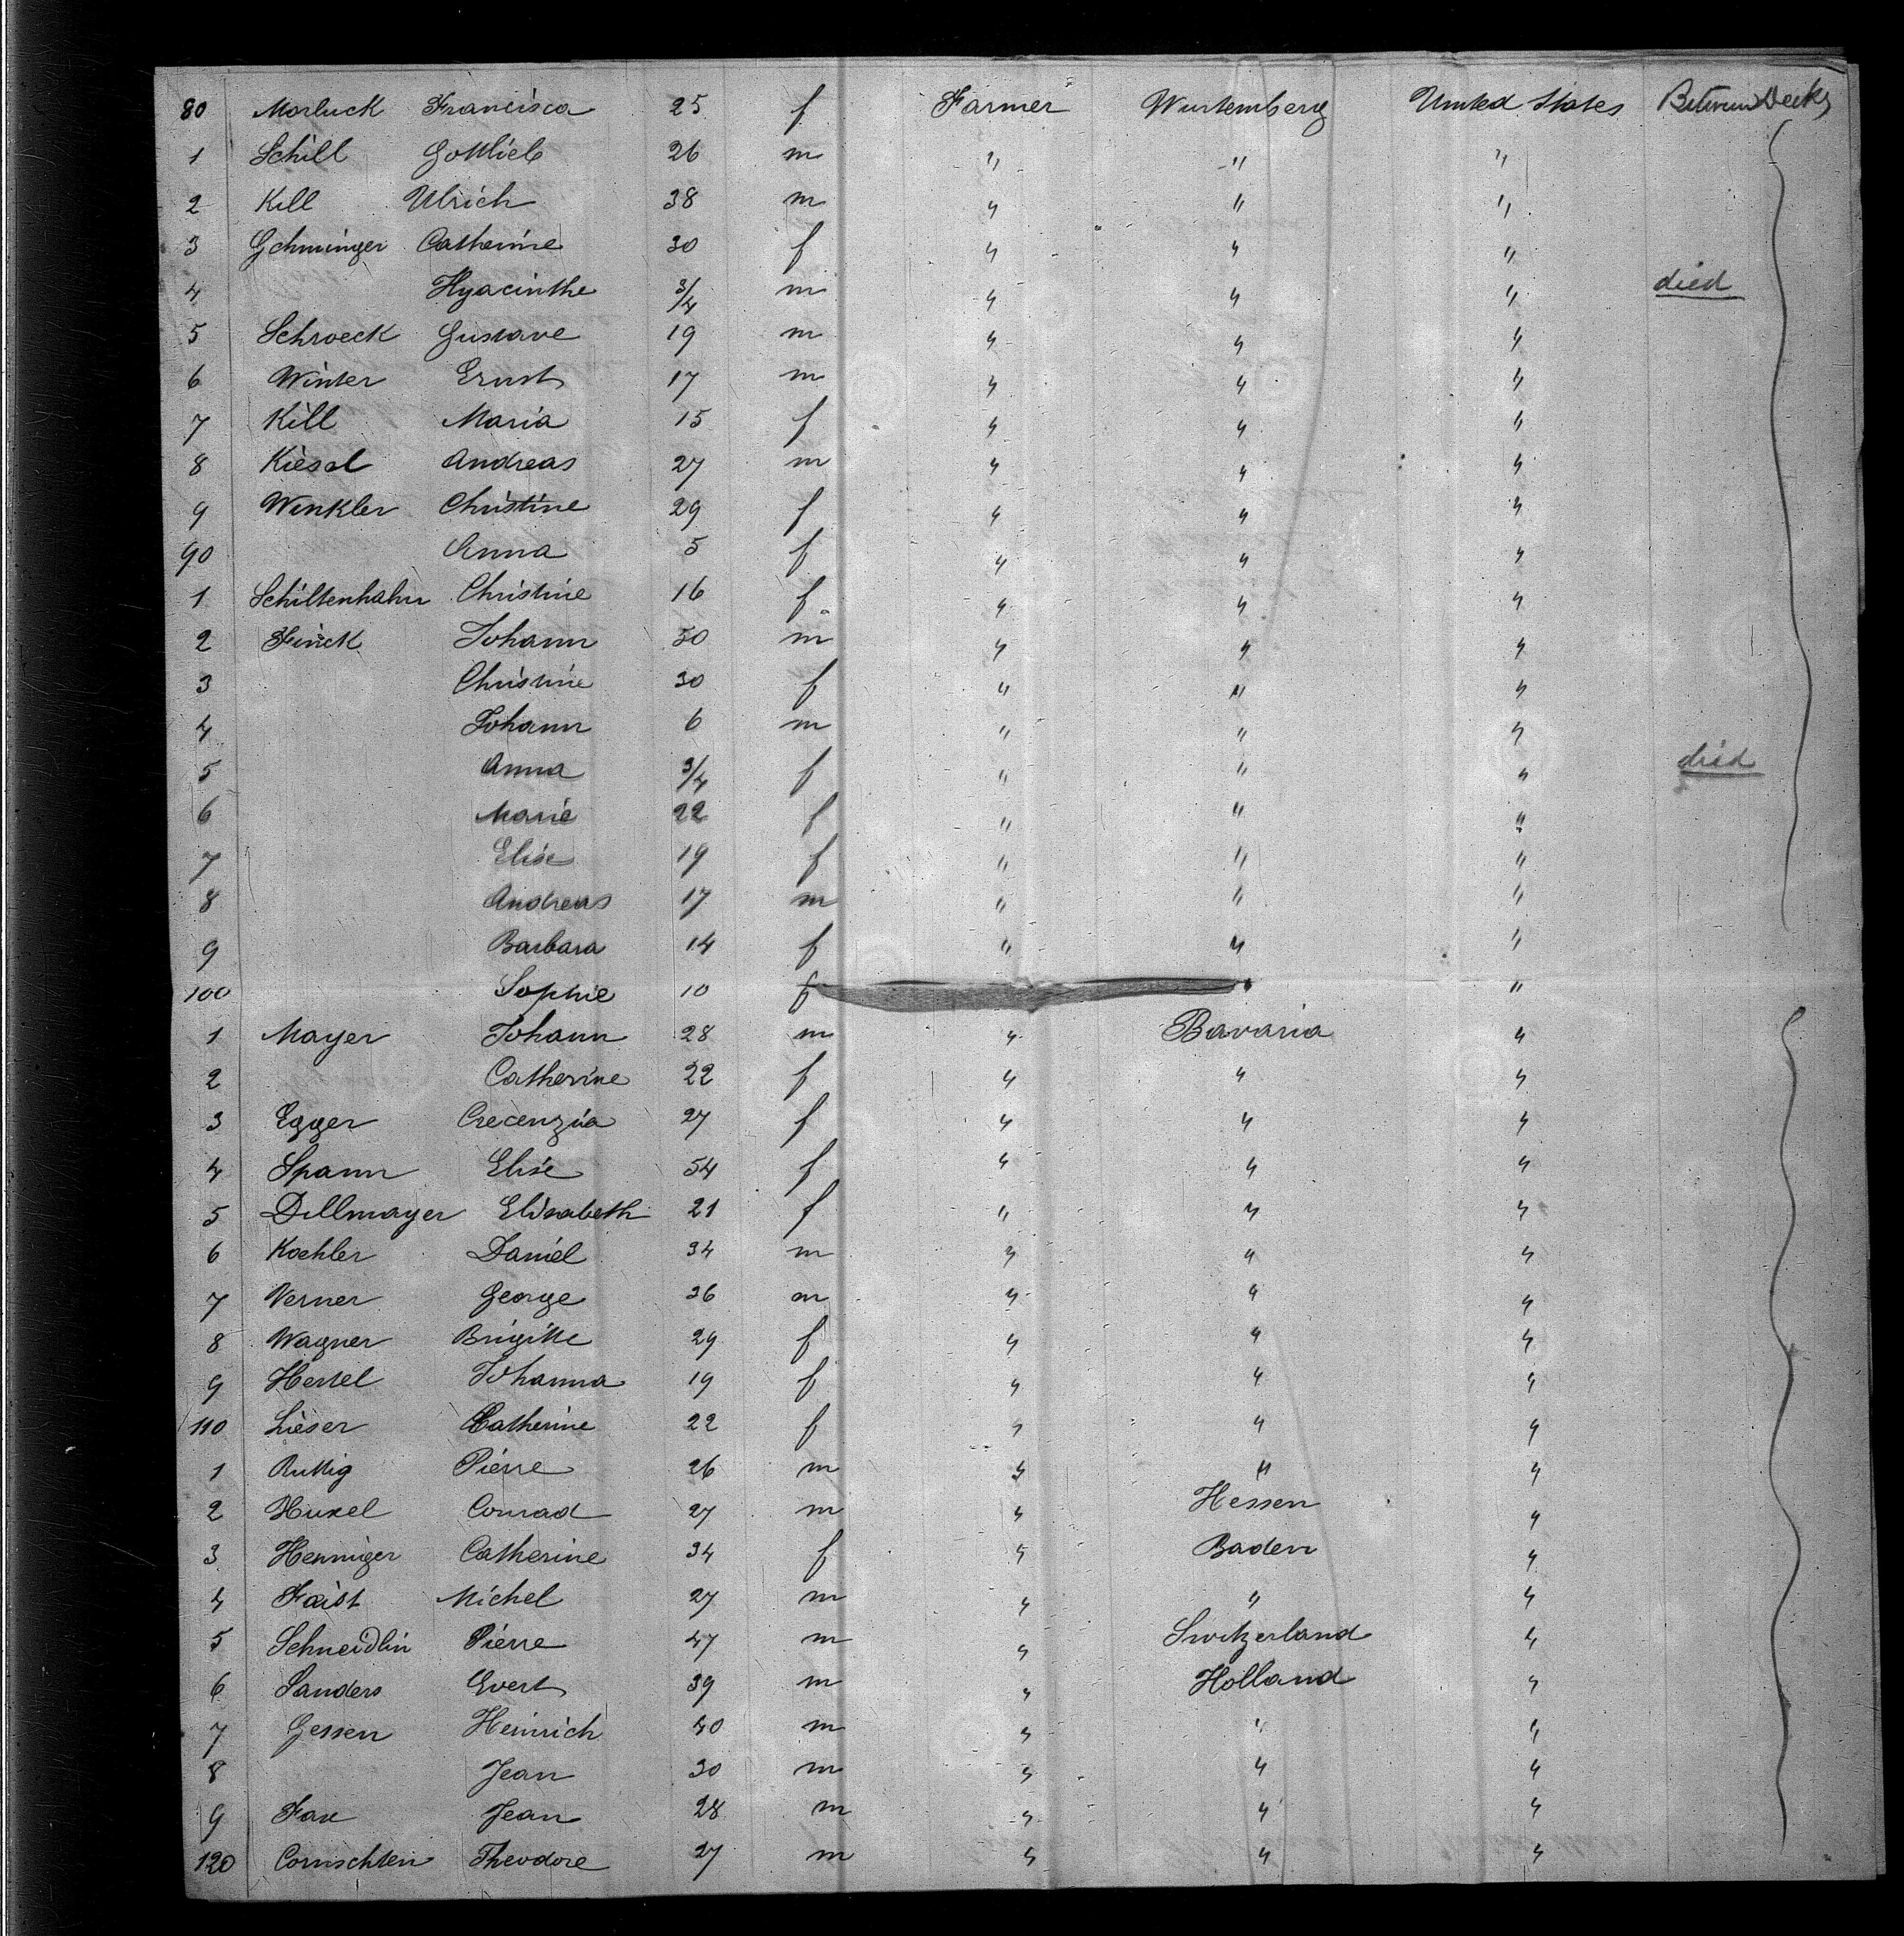 80 Morluck Francisca 25 f Farmer Wurtemberg United States Between Decks
1 Schill Gottlieb 26 m " " "
2 Kill Ulrich 38 m " " "
3 Gchminger Catherine 30 f " " "
4 Hyacinthe 3/4 m " " " died
5 Schroeck Gustave 19 m " " "
6 Winter Ernst 17 m " " "
7 Kill Maria 15 f " " "
8 Kiesel Andreas 27 m " " "
9 Winkler Christine 29 f " " "
90 Anna 5 f " " "
1 Schiltenhahn Christine 16 f " " "
2 Finck Johann 50 m " " "
3 Christine 30 f " " "
4 Johann 6 m " " "
5 Anna 3/4 f " " " died
6 Marie 22 f " " "
7 Elise 19 f " " "
8 Andreas 17 m " " "
9 Barbara 14 f " " "
100 Sophie 10 f " "
1 Mayer Johann 28 m " Bavaria "
2 Catherine 22 f " " "
3 Egger Crecenzia 27 f " " "
4 Spann Elise 54 f " " "
5 Dillmayer Elisabeth 21 f " " "
6 Koehler Daniel 34 m " " "
7 Verner George 36 m " " "
8 Wagner Brigitte 29 f " " "
9 Hertel Johanna 19 f " " "
110 Lieser Catherine 22 f " " "
1 Ruttig Pierre 26 m " " "
2 Huxel Conrad 27 m " Hessen "
3 Henniger Catherine 34 f " Baden "
4 Faist Michel 27 m " " "
5 Schneidlin Pierre 47 m " Switzerland "
6 Sanders Evert 39 m " Holland "
7 Gessen Heinrich 40 m " " "
8 Jean 30 m " " "
9 Fax Jean 28 m " " "
120 Cornschten Theodore 27 m " " "